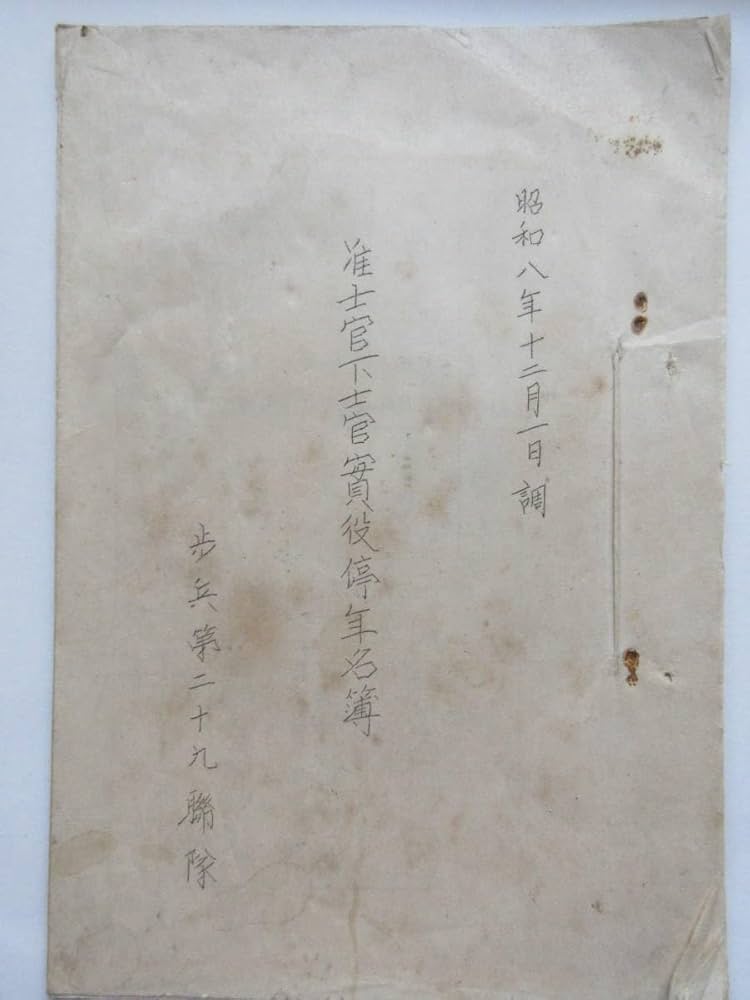 昭和八年十二月一日調
准士官下士官實役停年名簿
歩兵第二十九聯隊